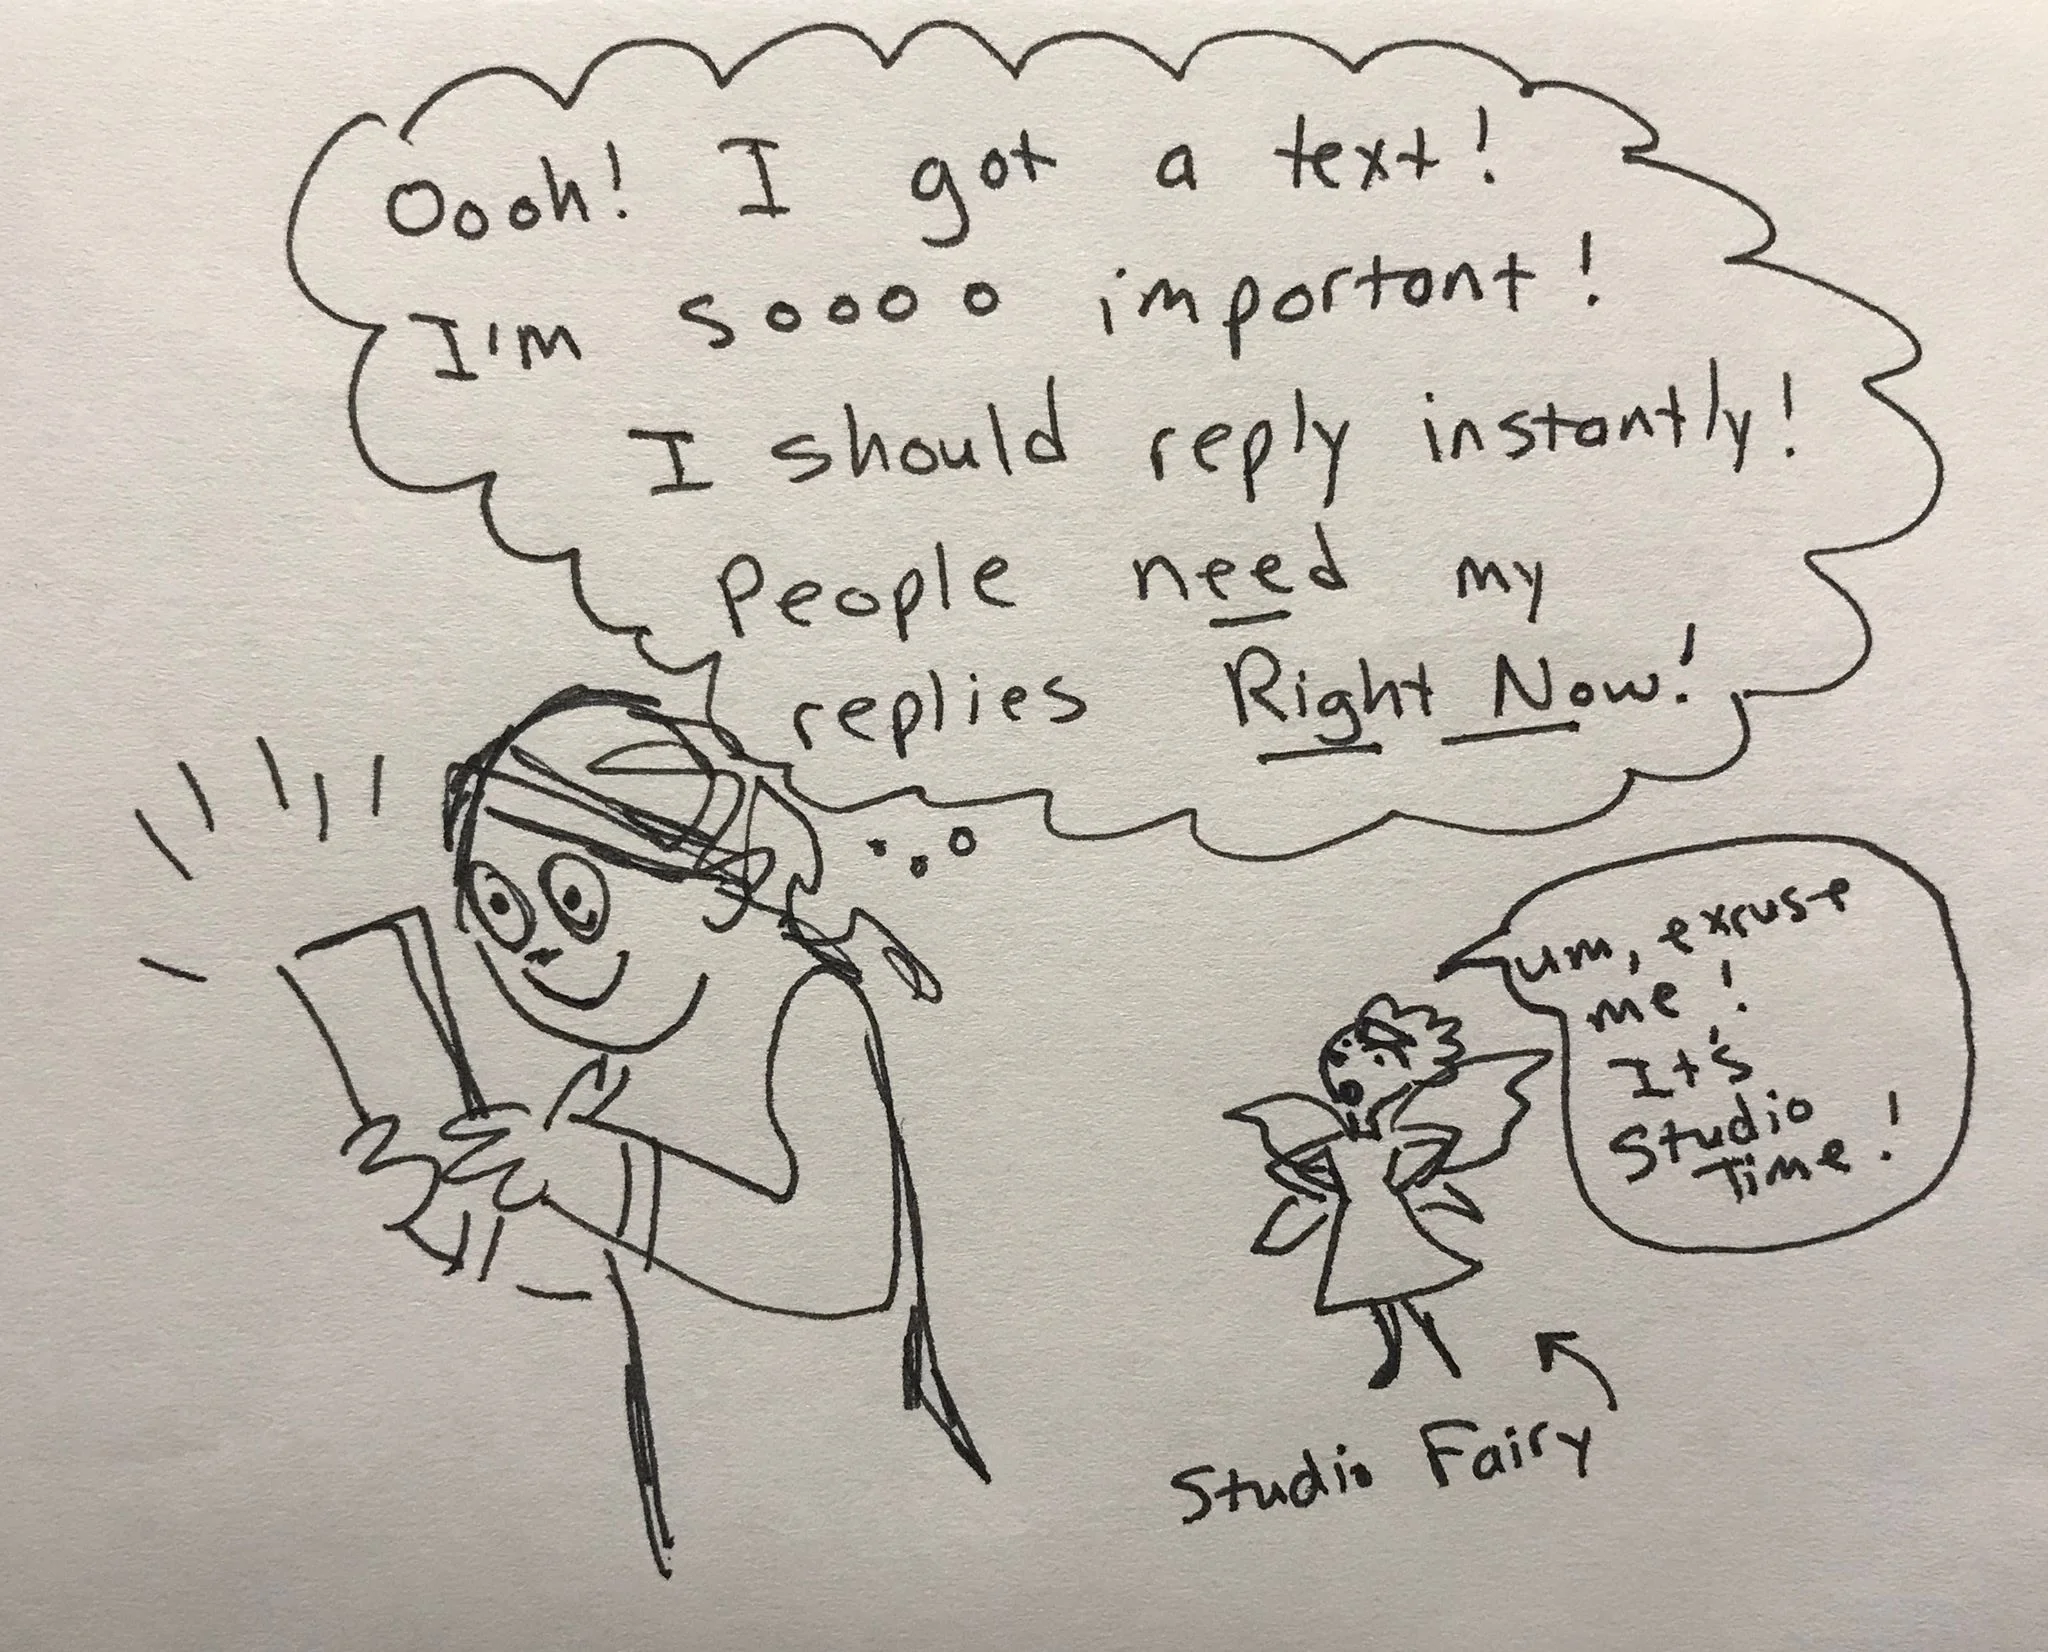 Oooh! I got a text!
I'm soooo important!
I should reply instantly!
People need my
replies Right Now!
um, excuse
me!
It's
Studio
Time!
Studio Fairy